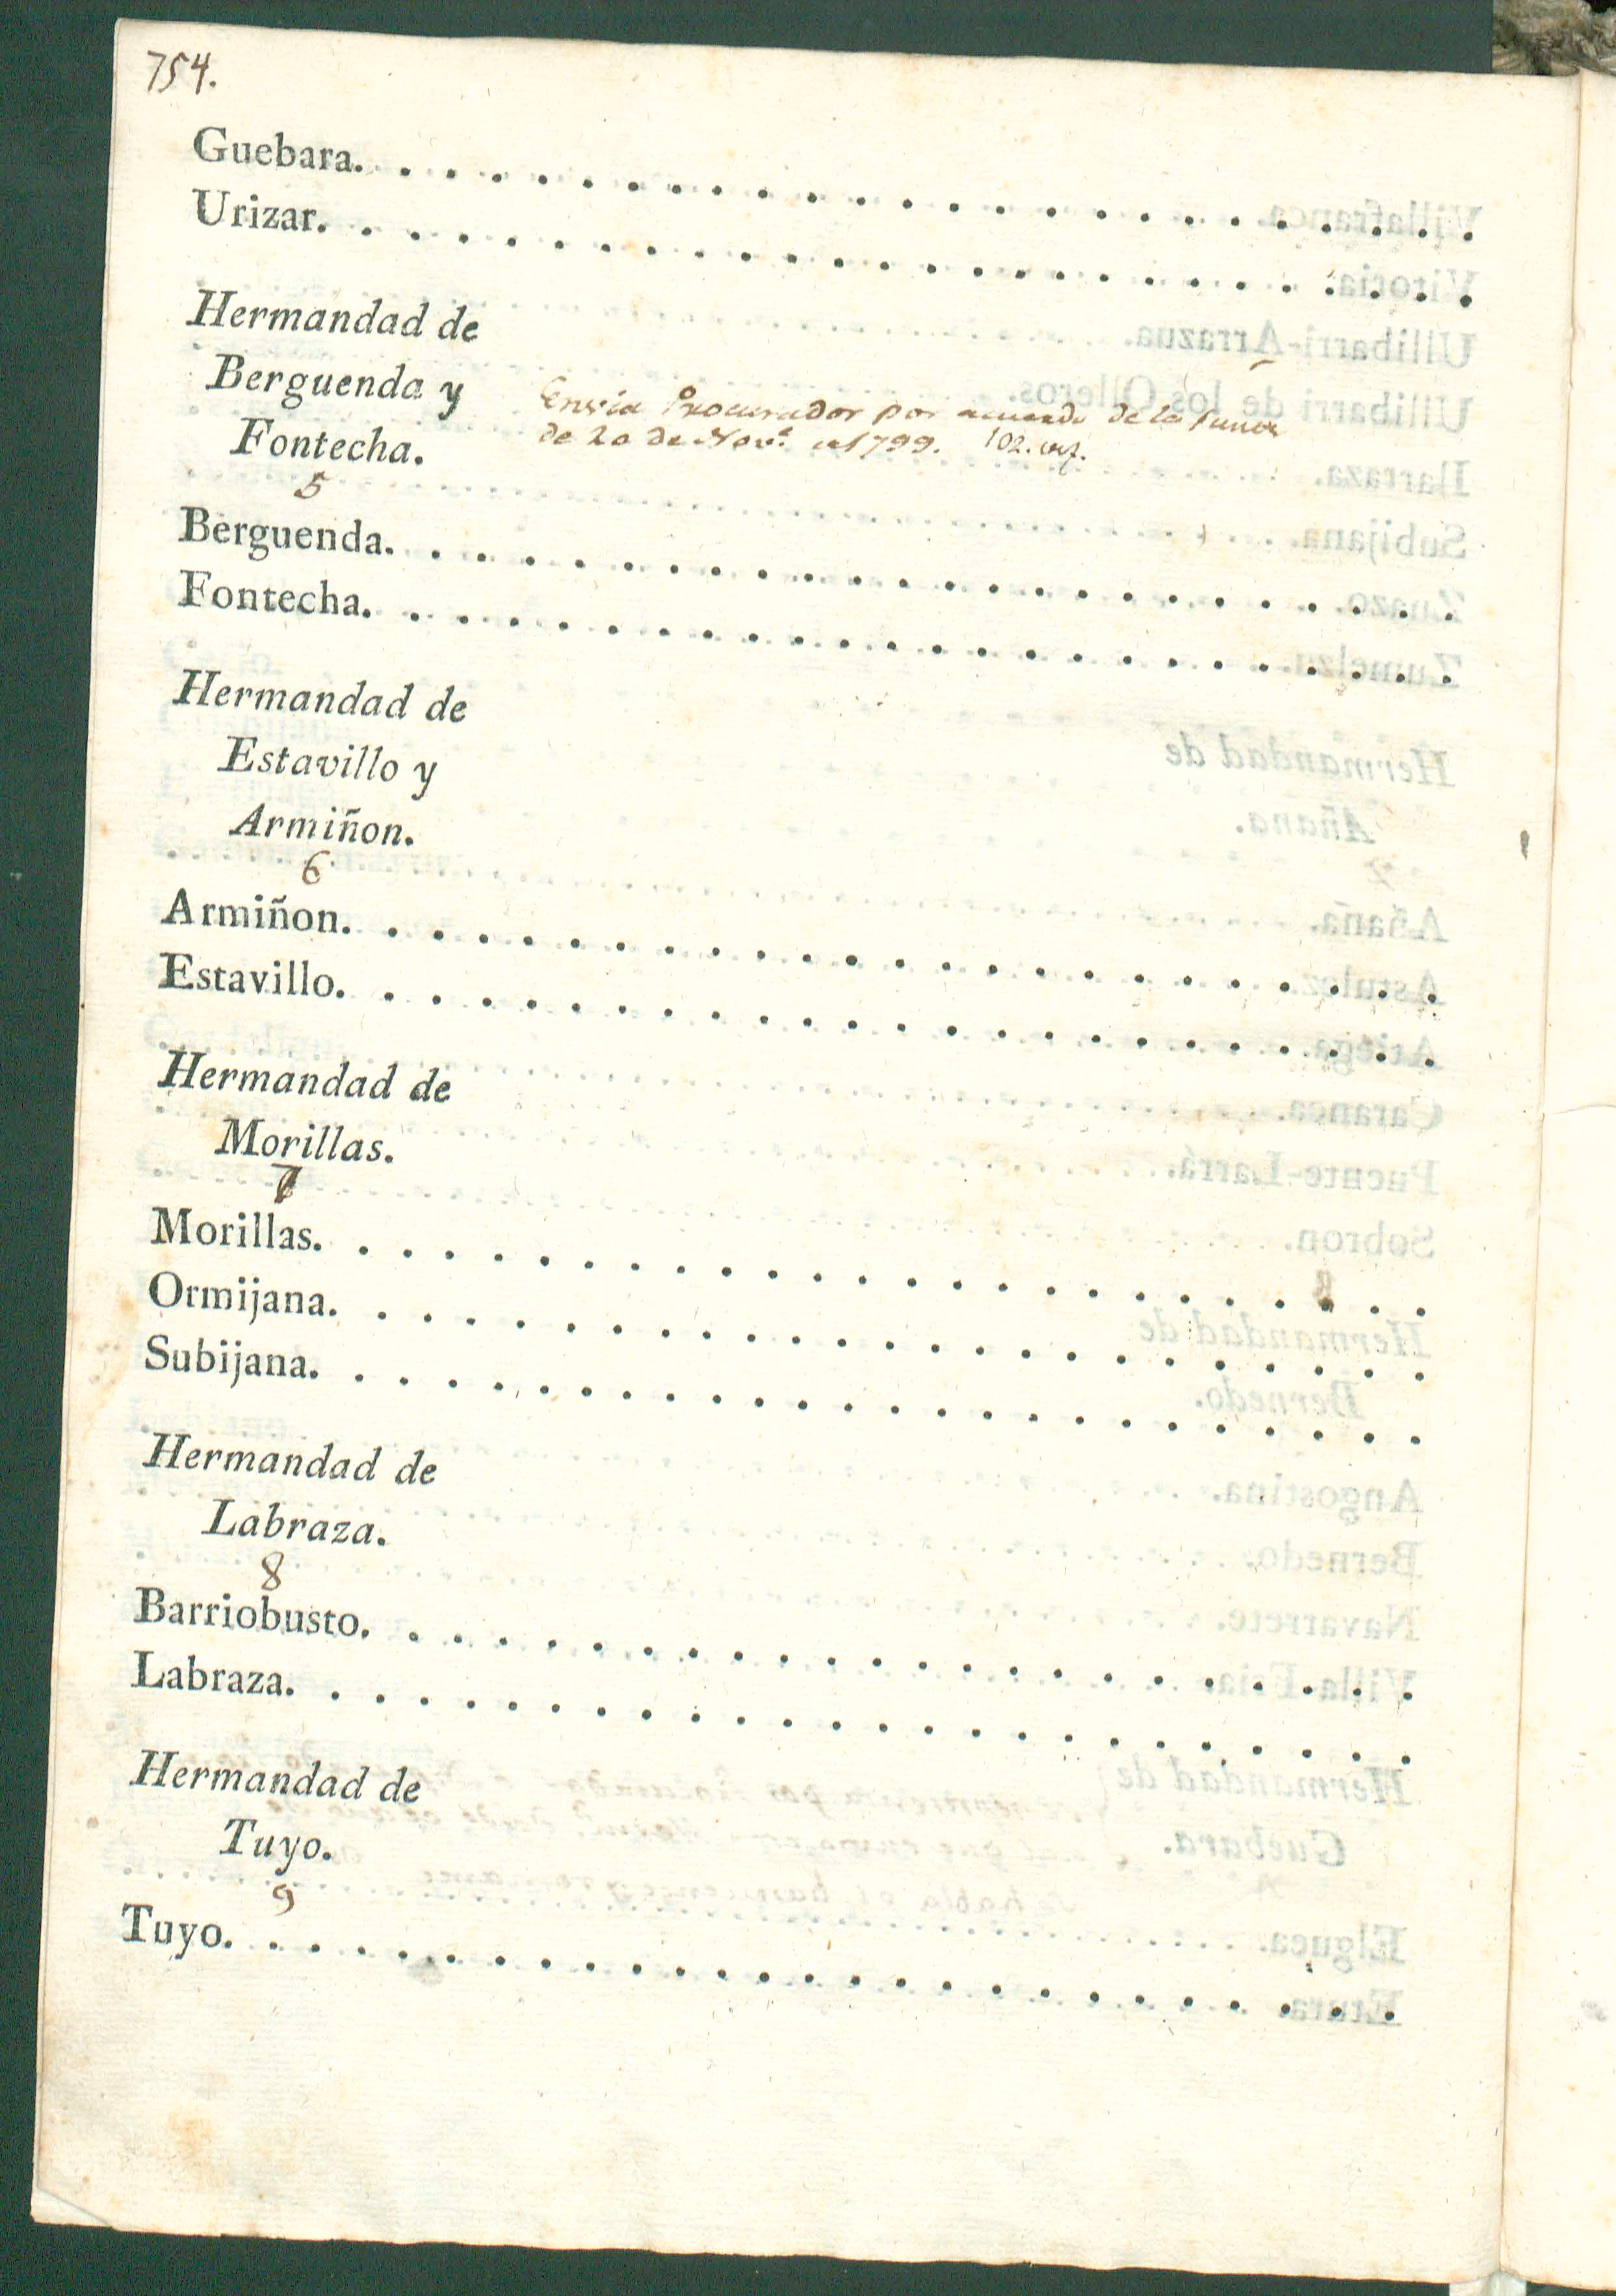 754.
Guebara. . . . . . . . . . . . . . . . . . . . . . . . .
Urizar. . . . . . . . . . . . . . . . . . . . . . . . . .
Hermandad de
Berguenda y
Fontecha.
5
Envia Procurador por acuerdo de la Junta
de 20 de Nov.e de 1799.
Berguenda. . . . . . . . . . . . . . . . . . . . . . . .
Fontecha. . . . . . . . . . . . . . . . . . . . . . . .
Hermandad de
Estavillo y
Armiñon.
6
Armiñon. . . . . . . . . . . . . . . . . . . . . . . .
Estavillo. . . . . . . . . . . . . . . . . . . . . . . .
Hermandad de
Morillas.
7
Morillas. . . . . . . . . . . . . . . . . . . . . . . .
Ormijana. . . . . . . . . . . . . . . . . . . . . . . .
Subijana. . . . . . . . . . . . . . . . . . . . . . . .
Hermandad de
Labraza.
8
Barriobusto. . . . . . . . . . . . . . . . . . . . . . .
Labraza. . . . . . . . . . . . . . . . . . . . . . . . .
Hermandad de
Tuyo.
9
Tuyo. . . . . . . . . . . . . . . . . . . . . . . . . . .